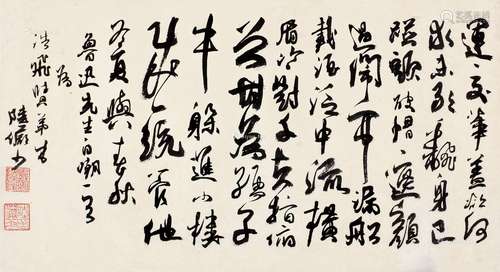 運交華蓋欲何
求未敢翻身已
碰頭破帽遮顏
過鬧市漏船
載酒泛中流橫
眉冷對千夫指俯
首甘為孺子
牛躲進小樓
成一統管他
冬夏與春秋
魯迅先生自嘲一首
為
浩飛賢弟書
陸儼少